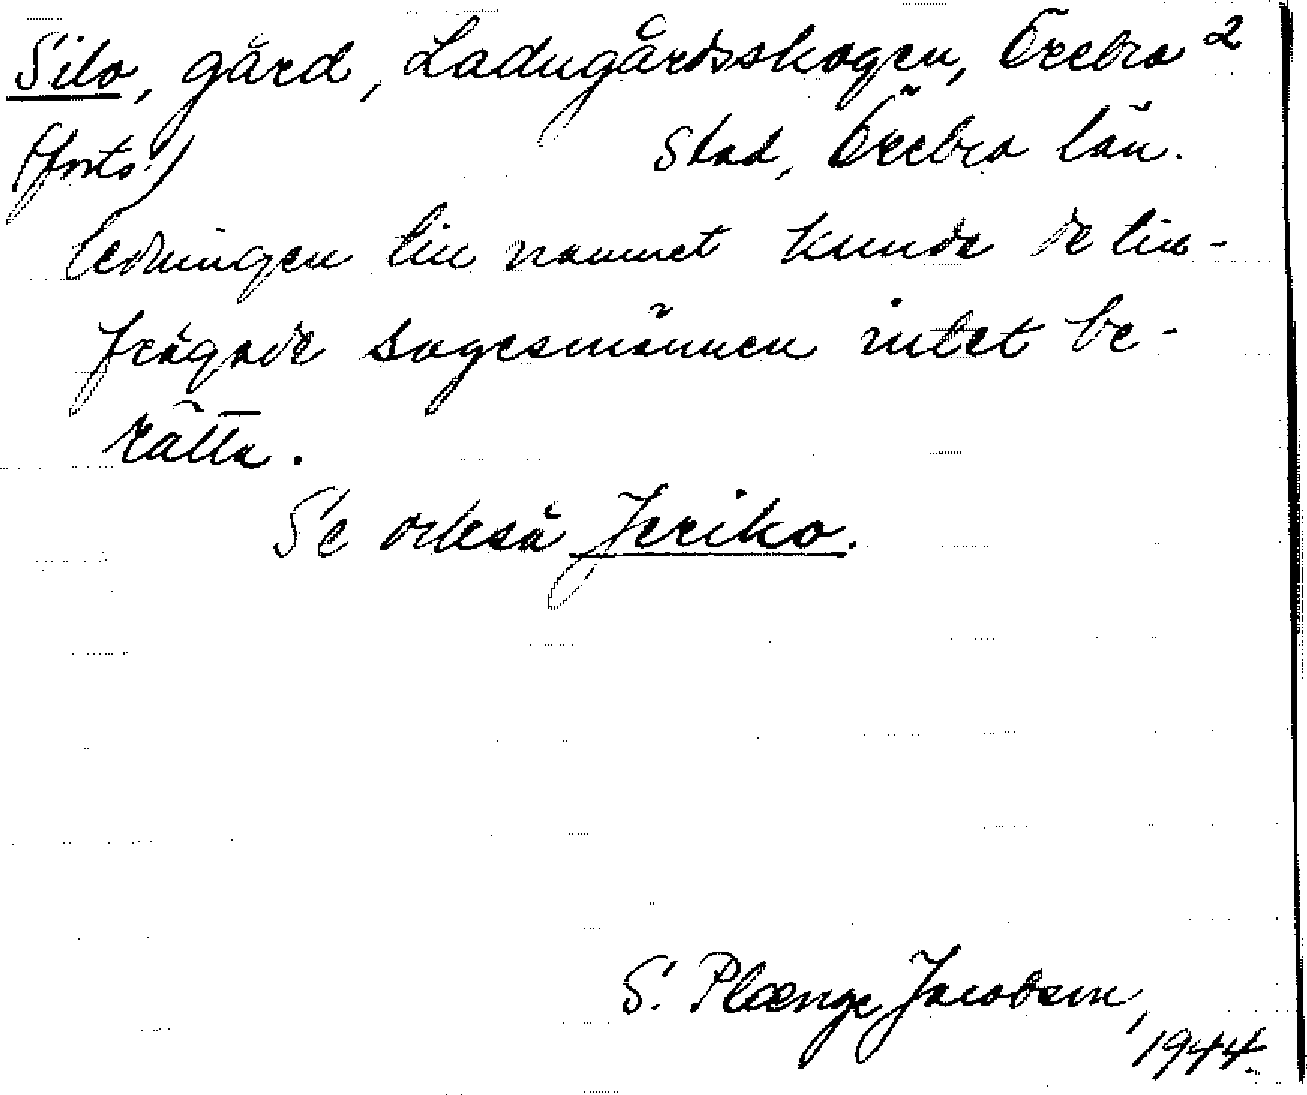 Silo, gård, Ladugårdsskogen, Örebro 2
(forts.) stad, Örebro län.
ledningen till namnet kunde de till-
frågade sagesmännen intet be-
rätta.
Se också Jeriko.
S. Plænge Jacobson,
1944.